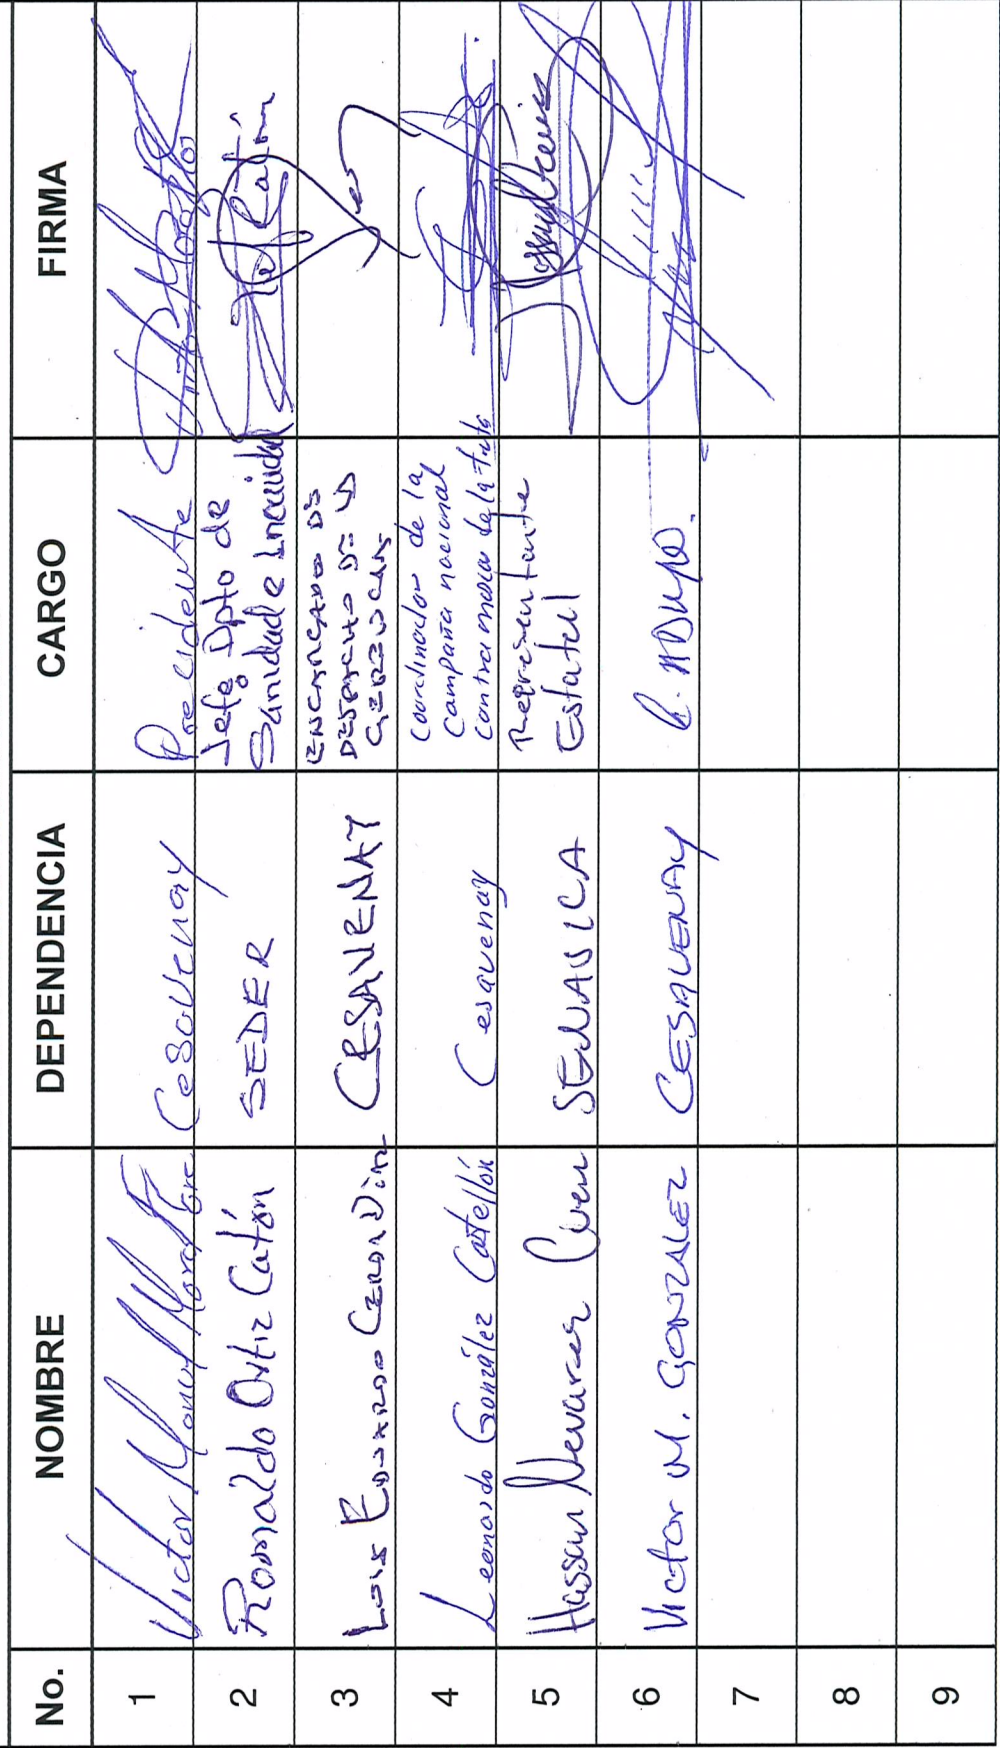 No. NOMBRE DEPENDENCIA CARGO FIRMA
1 Victor Manuel Mora Cesavenay Precidente
2 Romaldo Ortiz Catón SEDER Jefe Dpto de
Sanidad e Inocuidad
3 Luis Eduardo Ceron Diaz CESAVENAY ENCARGADO DE
DESPACHO DE LA
GERENCIA
4 Leonardo González Castellón Cesavenay Coordinador de la
Campaña nacional
contra mosca de la fruta
5 Hassan Nevarez SENASICA Representante
Estatal
6 Victor M. GONZALEZ CESAVENAY
7
8
9